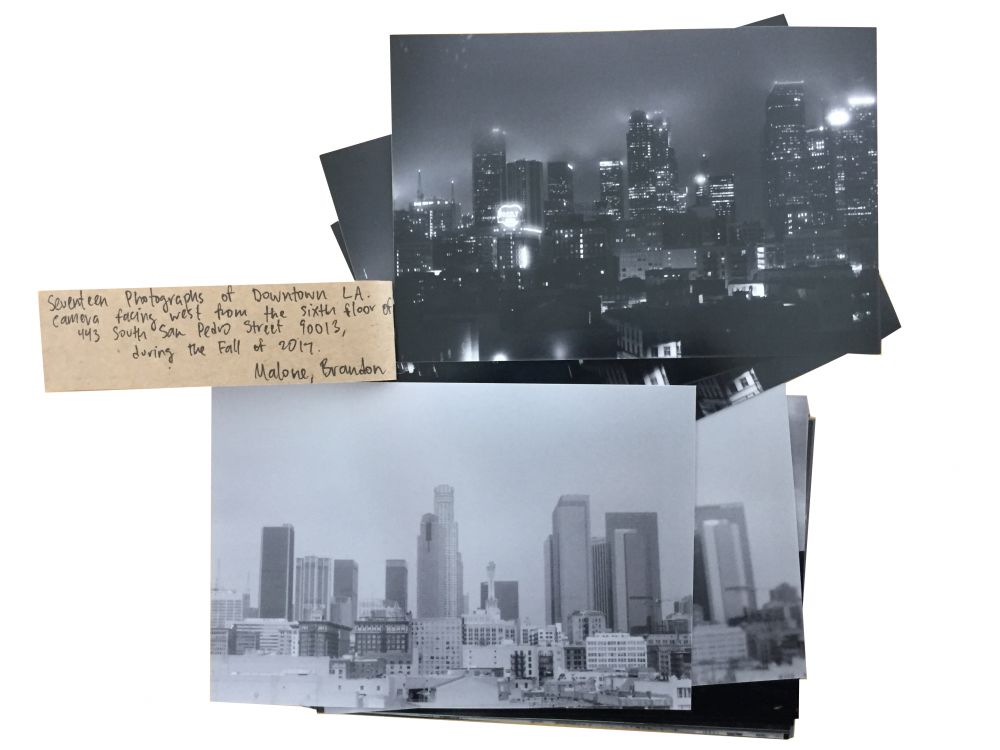 Seventeen Photographs of Downtown L.A.
Camera facing west from the sixth floor of
443 South San Pedro Street 90013,
during the Fall of 2017.
Malone, Brandon